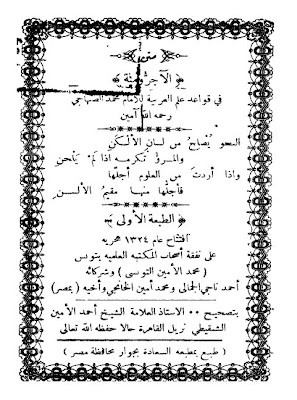 متن
﴿ الآجرومية ﴾
في قواعد علم العربية للامام محمد الصنهاجي
رحمه الله آمين
النحو يُصلح من لسان الألكن
والمرء تكرمه اذا لم يلحن
واذا أردت من العلوم أجلّها
فأجلّها منها مقيم الألسن
﴿ الطبعة الأولى ﴾
افتتاح عام ١٣٢٤ هجريه
على نفقة أصحاب المكتبه العلميه بتونس
( محمد الأمين التونسى ) وشركائه
أحمد ناجي الجمالي ومحمد أمين الخانجي وأخيه ( بمصر )
بتصحيح ٠٠ الاستاذ العلامة الشيخ أحمد الأمين
الشنقيطي نزيل القاهرة حالا حفظه الله تعالى
( طبع بمطبعه السعادة بجوار محافظة مصر )